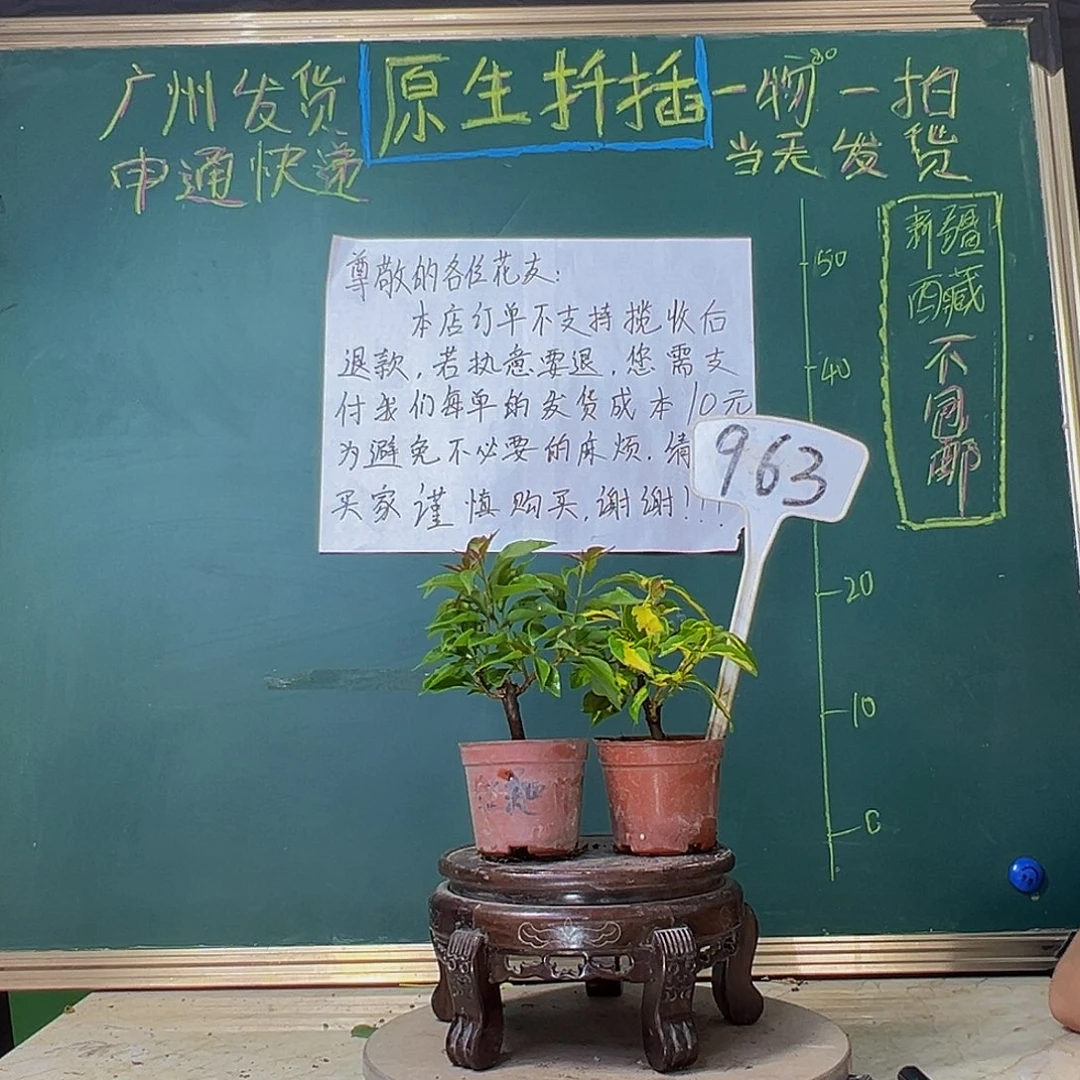 广州发货
原生扦插
一物一拍
申通快递
当天发货
新疆
西藏
不包邮
尊敬的各位花友:
本店订单不支持揽收后
退款,若执意要退,您需支
付我们每单的发货成本10元
为避免不必要的麻烦.请
买家谨慎购买,谢谢!!!
963
50
40
20
10
0